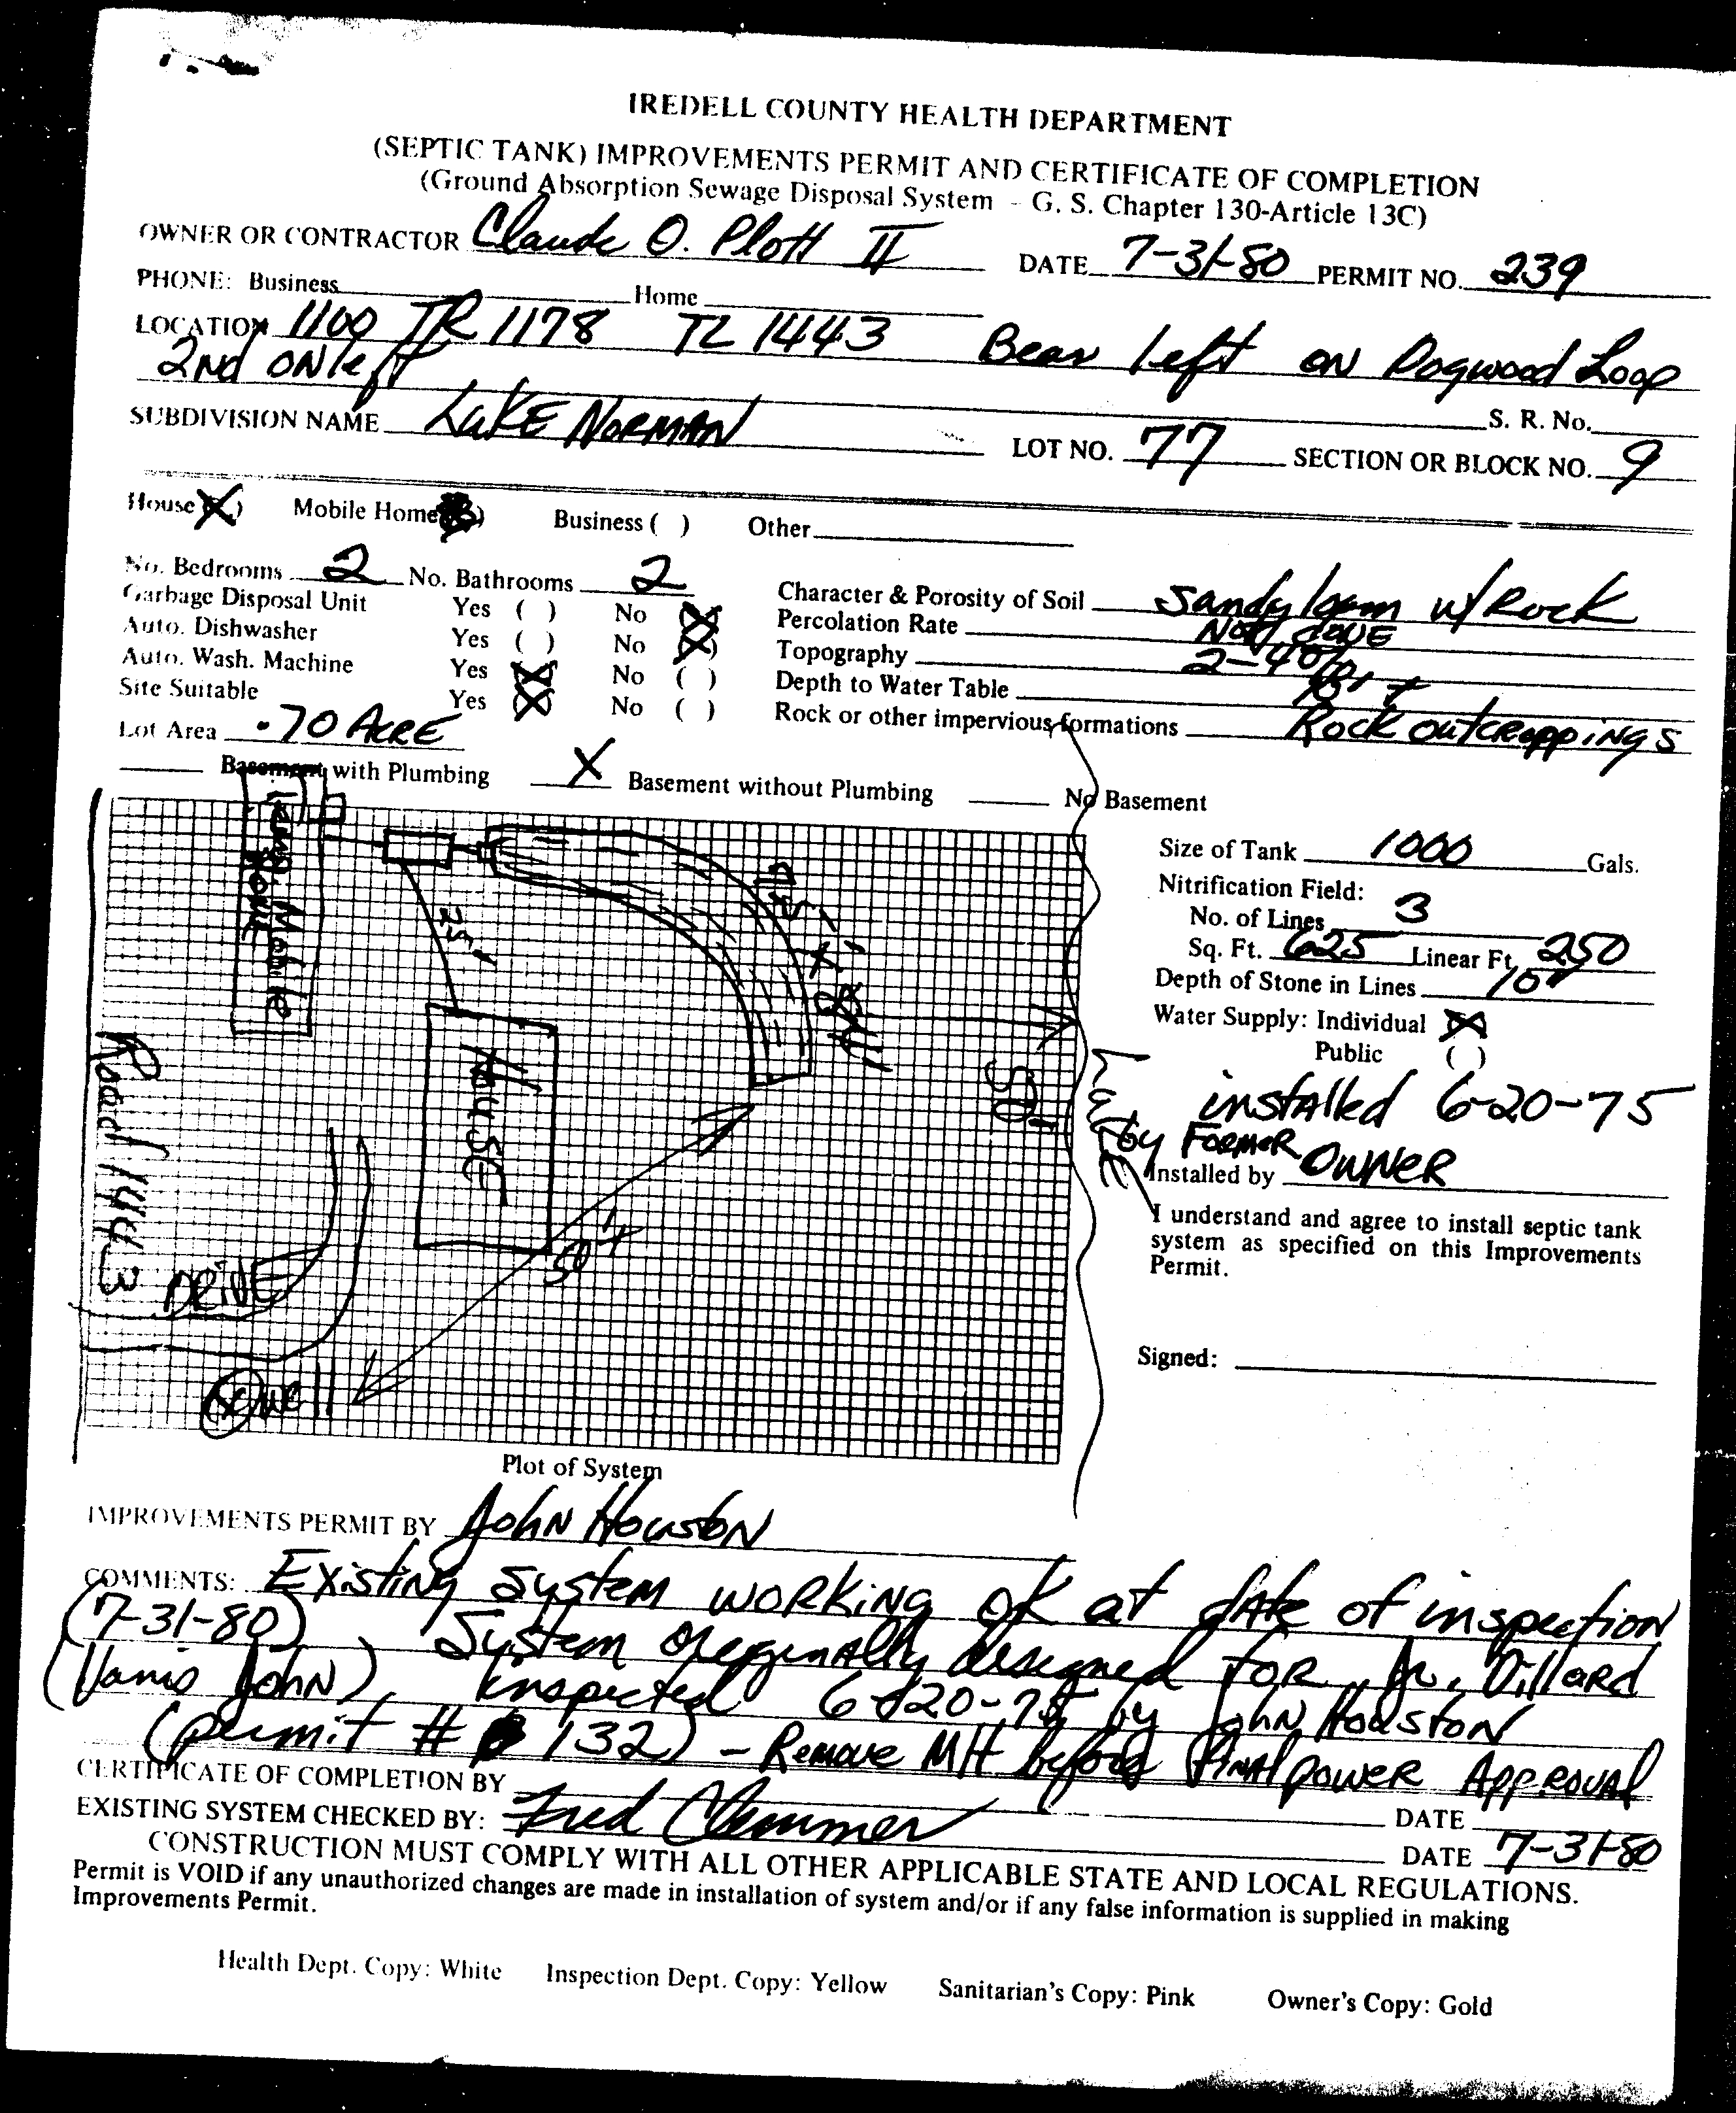 IREDELL COUNTY HEALTH DEPARTMENT
(SEPTIC TANK) IMPROVEMENTS PERMIT AND CERTIFICATE OF COMPLETION
(Ground Absorption Sewage Disposal System - G. S. Chapter 130-Article 13C)
OWNER OR CONTRACTOR Claude O. Plott II DATE 7-31-80 PERMIT NO. 239
PHONE: Business Home
LOCATION 1100 TR 1178 TL 1443 Bear left on Dogwood Loop
2nd ON left
S. R. No.
SUBDIVISION NAME LAKE NORMAN LOT NO. 77 SECTION OR BLOCK NO. 9
House (X) Mobile Home Business ( ) Other
No. Bedrooms 2 No. Bathrooms 2
Garbage Disposal Unit Yes ( ) No (X)
Auto. Dishwasher Yes ( ) No (X)
Auto. Wash. Machine Yes (X) No ( )
Site Suitable Yes (X) No ( )
Lot Area .70 ACRE
Character & Porosity of Soil Sandy loam w/Rock
Percolation Rate NOT dONE
Topography 2-4%
Depth to Water Table
Rock or other impervious formations Rock outcroppings
Basement with Plumbing X Basement without Plumbing No Basement
Mobile Home
25'
House
50'
Road 1443
DRIVE
50'+
Well
LAKE
Plot of System
Size of Tank 1000 Gals.
Nitrification Field:
No. of Lines 3
Sq. Ft. 625 Linear Ft. 250
Depth of Stone in Lines 10"
Water Supply: Individual (X)
Public ( )
installed 6-20-75
by FORMER
Installed by OWNER
I understand and agree to install septic tank
system as specified on this Improvements
Permit.
Signed:
IMPROVEMENTS PERMIT BY John Houston
COMMENTS: Existing System WORKING OK at date of inspection
(7-31-80) System oreginally designed FOR Jr. Dillard
John) inspected 6-20-75 by John Houston
(permit # 132) - Remove MH before FINAL POWER APPROVAL
CERTIFICATE OF COMPLETION BY DATE
EXISTING SYSTEM CHECKED BY: Fred Clemmer DATE 7-31-80
CONSTRUCTION MUST COMPLY WITH ALL OTHER APPLICABLE STATE AND LOCAL REGULATIONS.
Permit is VOID if any unauthorized changes are made in installation of system and/or if any false information is supplied in making
Improvements Permit.
Health Dept. Copy: White Inspection Dept. Copy: Yellow Sanitarian's Copy: Pink Owner's Copy: Gold